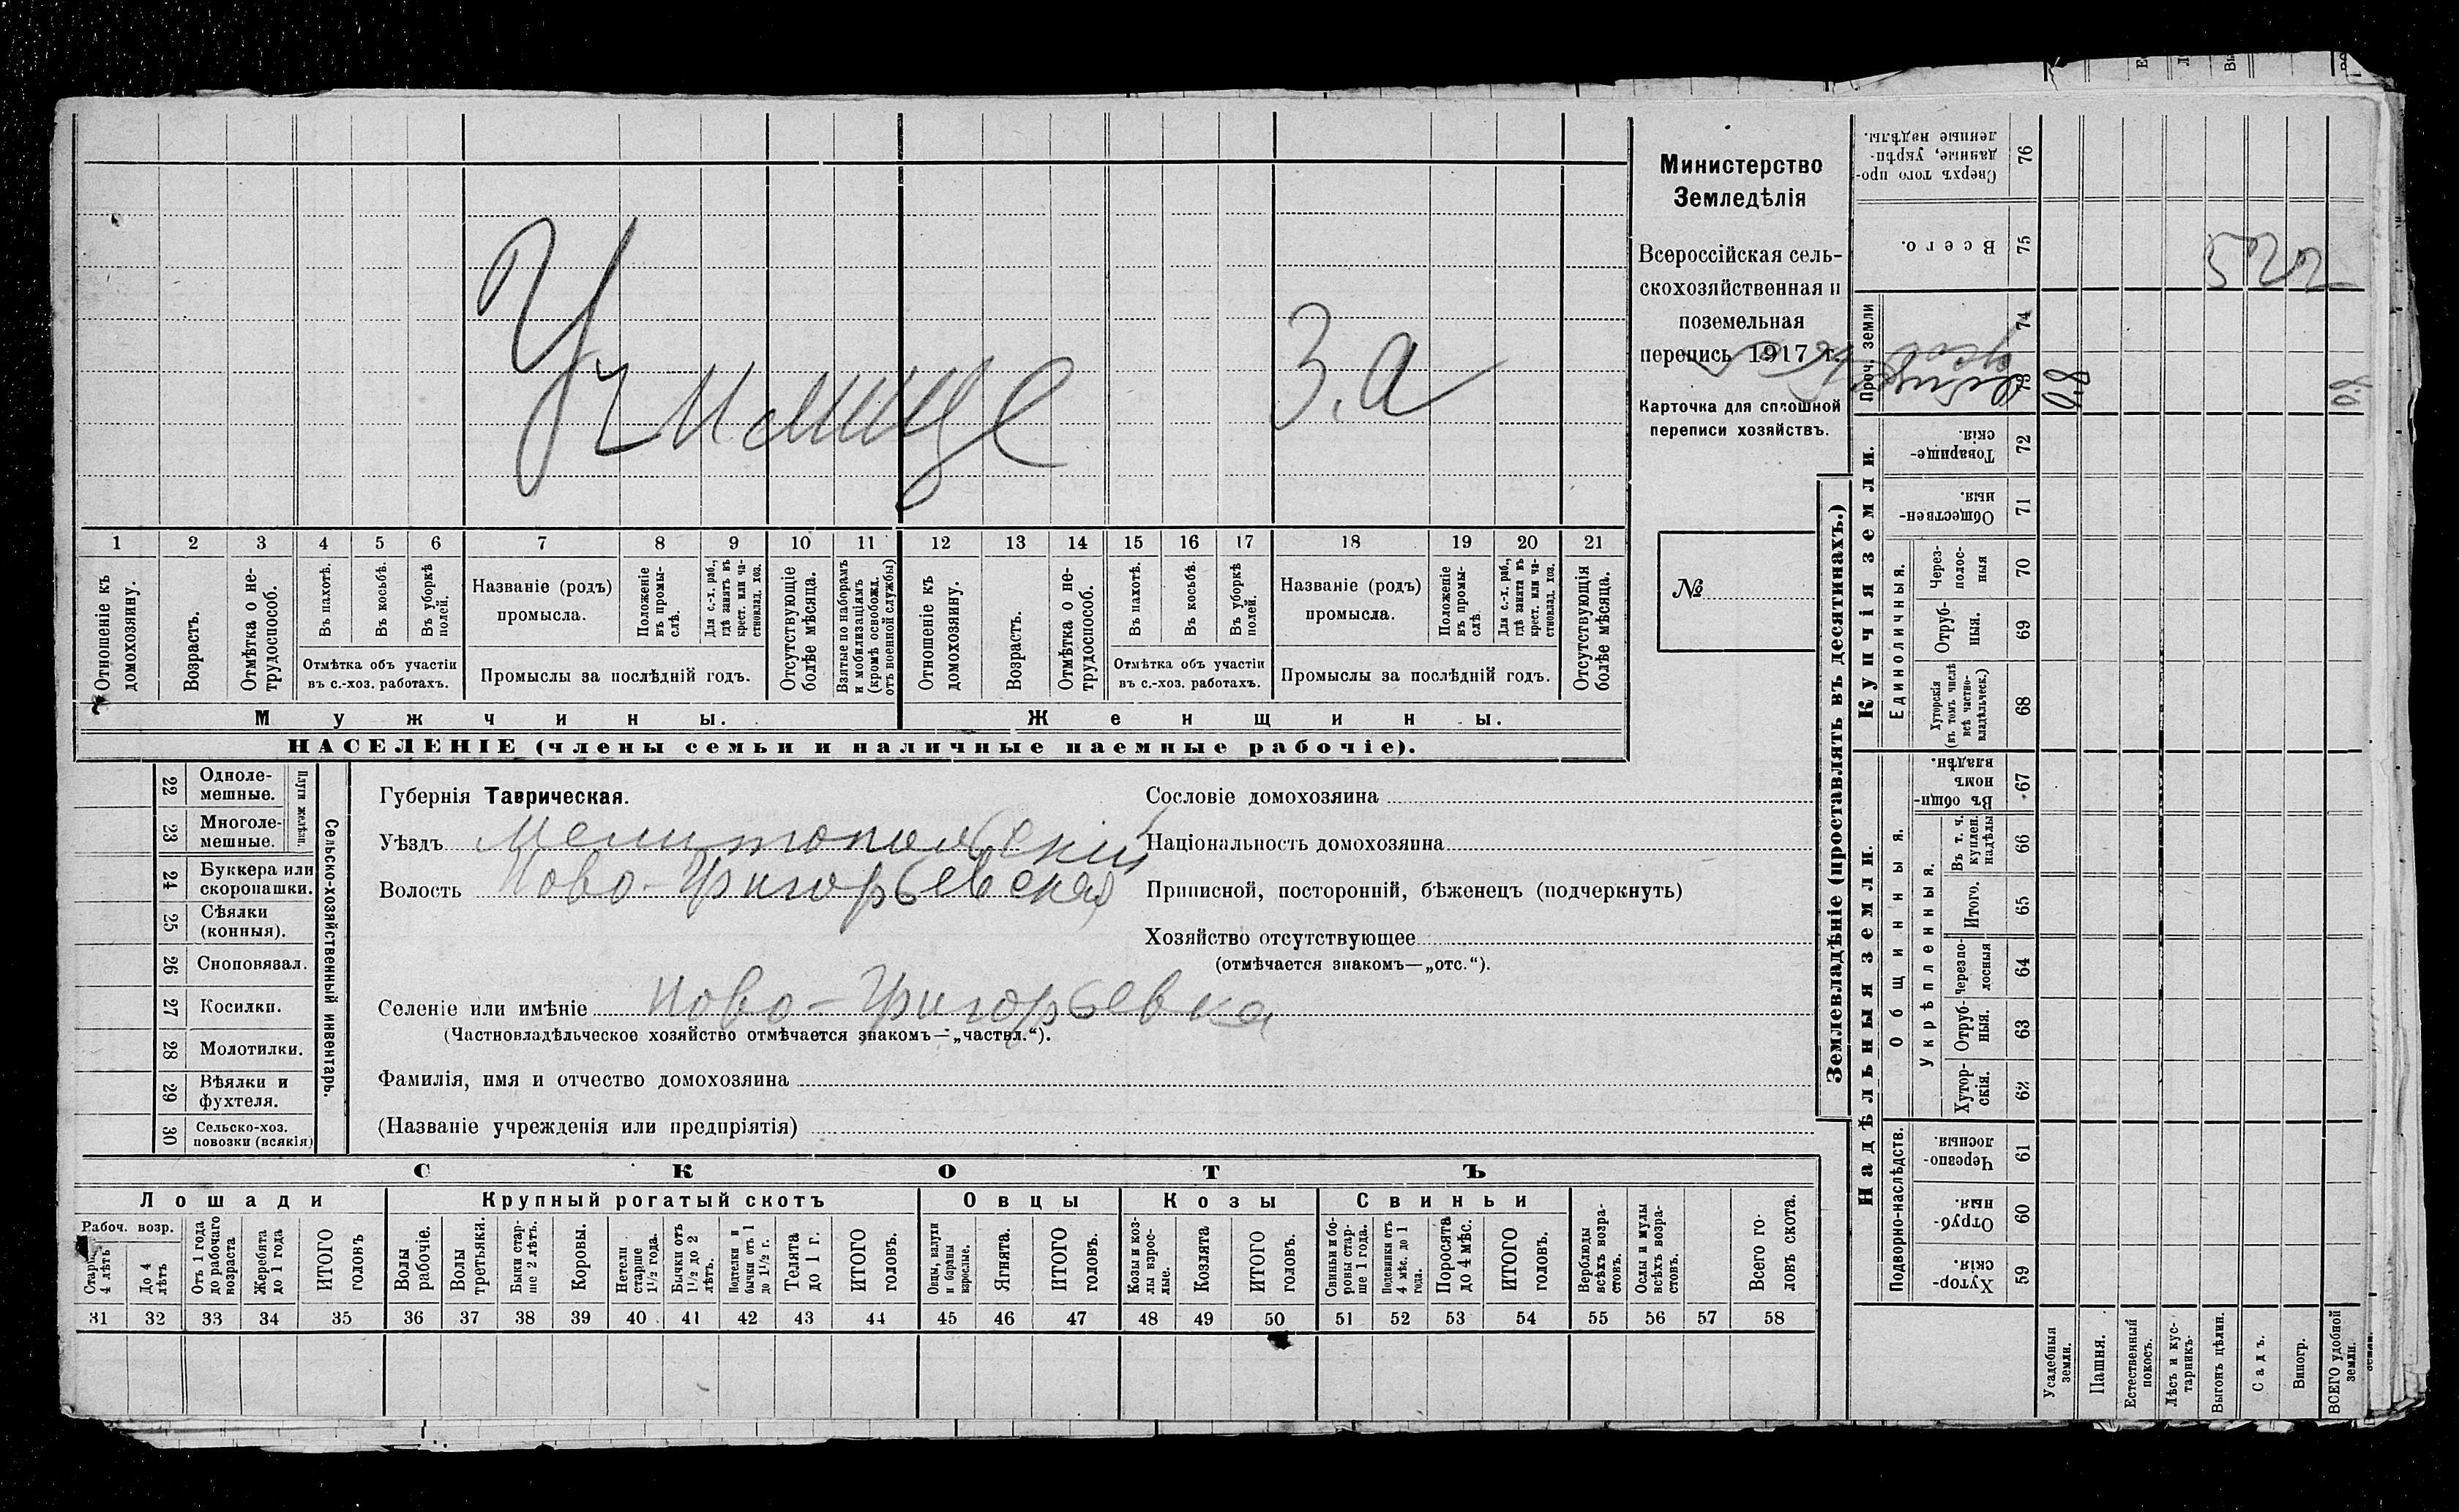 Училище 3.а
1 2 3 4 5 6 7 8 9 10 11 12 13 14 15 16 17 18 19 20 21
Отношеніе къ домохозяину.
Возрастъ.
Отмѣтка о не-трудоспособ.
Въ пахотѣ.
Въ косьбѣ.
Въ уборкѣ полей.
Отмѣтка объ участіи
въ с.-хоз. работахъ.
Названіе (родъ)
промысла.
Положеніе въ промы-слѣ.
Для с.-х. раб., гдѣ занятъ въ крест. или ча-стновлад. хоз.
Промыслы за послѣдній годъ.
Отсутствующіе болѣе мѣсяца.
Взятые по наборамъ и мобилизаціямъ (кромѣ освобожд. отъ военной службы)
Отношеніе къ домохозяину.
Возрастъ.
Отмѣтка о не-трудоспособ.
Въ пахотѣ.
Въ косьбѣ.
Въ уборкѣ полей.
Отмѣтка объ участіи
въ с.-хоз. работахъ.
Названіе (родъ)
промысла.
Положеніе въ промы-слѣ
Для с.-х. раб., гдѣ занята въ крест. или ча-стновлад. хоз.
Промыслы за послѣдній годъ.
Отсутствующія болѣе мѣсяца.
Мужчины.
Женщины.
НАСЕЛЕНІЕ (члены семьи и наличные наемные рабочіе).
Министерство
Земледѣлія
Всероссійская сель-
скохозяйственная и
поземельная
перепись 1917 г.
Карточка для сплошной
переписи хозяйствъ.
№
Сельско-хозяйственный инвентарь.
Плуги желѣзн.
22 Одноле-
мешные.
23 Многоле-
мешные.
24 Буккера или
скоропашки.
25 Сѣялки
(конныя).
26 Сноповязал.
27 Косилки.
28 Молотилки.
29 Вѣялки и
фухтеля.
30 Сельско-хоз.
повозки (всякія)
Губернія Таврическая.
Уѣздъ Мелитопольскій
Волость Ново-Григорьевская
Селеніе или имѣніе Ново-Григорьевка
(Частновладѣльческое хозяйство отмѣчается знакомъ—„частвл.“).
Фамилія, имя и отчество домохозяина
(Названіе учрежденія или предпріятія)
Сословіе домохозяина
Національность домохозяина
Приписной, посторонній, бѣженецъ (подчеркнуть)
Хозяйство отсутствующее
(отмѣчается знакомъ—„отс.“).
СКОТЪ
Лошади
Крупный рогатый скотъ
Овцы
Козы
Свиньи
Рабоч. возр.
Старше 4 лѣтъ
До 4 лѣтъ
Отъ 1 года до рабочаго возраста
Жеребята до 1 года
ИТОГО головъ
Волы рабочіе.
Волы третьяки.
Быки стар-ше 2 лѣтъ.
Коровы.
Нетели старше 1½ года.
Бычки отъ 1½ до 2 лѣтъ.
Подтелки и бычки отъ 1 до 1½ г.
Телята до 1 г.
ИТОГО головъ.
Овцы, валухи и бараны взрослые.
Ягнята.
ИТОГО головъ.
Козы и коз-лы взрос-лые.
Козлята
ИТОГО головъ.
Свиньи и бо-ровы стар-ше 1 года.
Подсвинки отъ 4 мѣс. до 1 года.
Поросята до 4 мѣс.
ИТОГО головъ.
Верблюды всѣхъ возра-стовъ.
Ослы и мулы всѣхъ возра-стовъ.
Всего го-ловъ скота.
31 32 33 34 35 36 37 38 39 40 41 42 43 44 45 46 47 48 49 50 51 52 53 54 55 56 57 58
Землевладѣніе (проставлять въ десятинахъ.)
Надѣльныя земли.
Купчія земли.
Проч. земли
Подворно-наслѣдств.
Общинныя.
Укрѣпленныя.
Единоличныя.
76 Сверхъ того про-
данные, укрѣп-
ленные надѣлы.
75 Всего.
74
73
72 Товарище-
скія.
71 Обществен-
ныя.
70 Через-
полос-
ныя
69 Отруб-
ныя.
68 Хуторскія
(въ томъ числѣ
всѣ частно-
владѣльческ.)
67 Въ общин-
номъ
владѣн.
66 Въ т. ч.
куплен.
надѣлы
65 Итого.
64 Черезпо-
лосныя
63 Отруб-
ныя.
62 Хутор-
скія.
61 Черезпо-
лосныя.
60 Отруб-
ныя.
59 Хутор-
скія.
Усадебныя земли.
Пашня.
Естественный покосъ.
Лѣсъ и кус-тарникъ.
Выгонъ цѣлин.
Садъ.
Виногр.
ВСЕГО удобной земли.